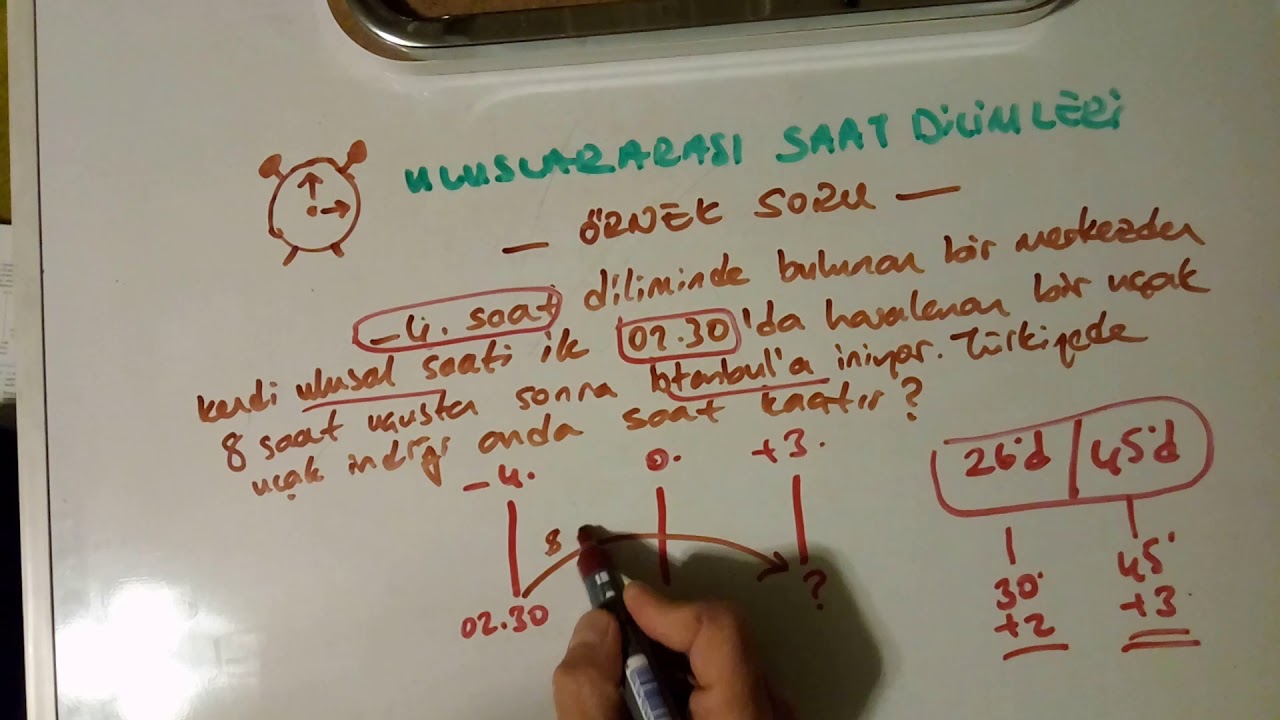 ULUSLARARASI SAAT DİLİMLERİ
— ÖRNEK SORU —
-4. saat diliminde bulunan bir merkezden
kendi ulusal saati ile 02.30'da havalanan bir uçak
8 saat uçuştan sonra İstanbul'a iniyor. Türkiyede
uçak indiği anda saat kaçtır?
-4. 0. +3.
8
02.30 ?
26°d 45°d
30° 45°
+2 +3